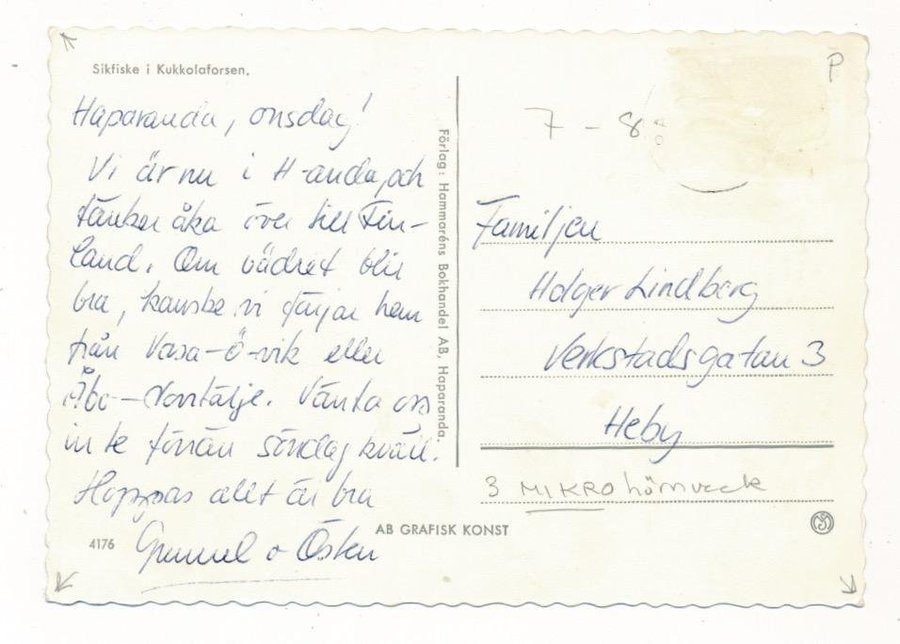 Sikfiske i Kukkolaforsen.
Haparanda, onsdag!
Vi är nu i H-anda, och
tänker åka över till Fin-
land. Om vädret blir
bra, kanske vi färjar hem
från Vasa-Ö-vik eller
Åbo-Norrtälje. Vänta oss
inte förrän söndag kväll.
Hoppas allt är bra
Gunnel o Östen
4176
AB GRAFISK KONST
Förlag: Hammaréns Bokhandel AB, Haparanda.
P
7-8
Familjen
Holger Lindberg
Verkstadsgatan 3
Heby
3 MIKRO hörnveck